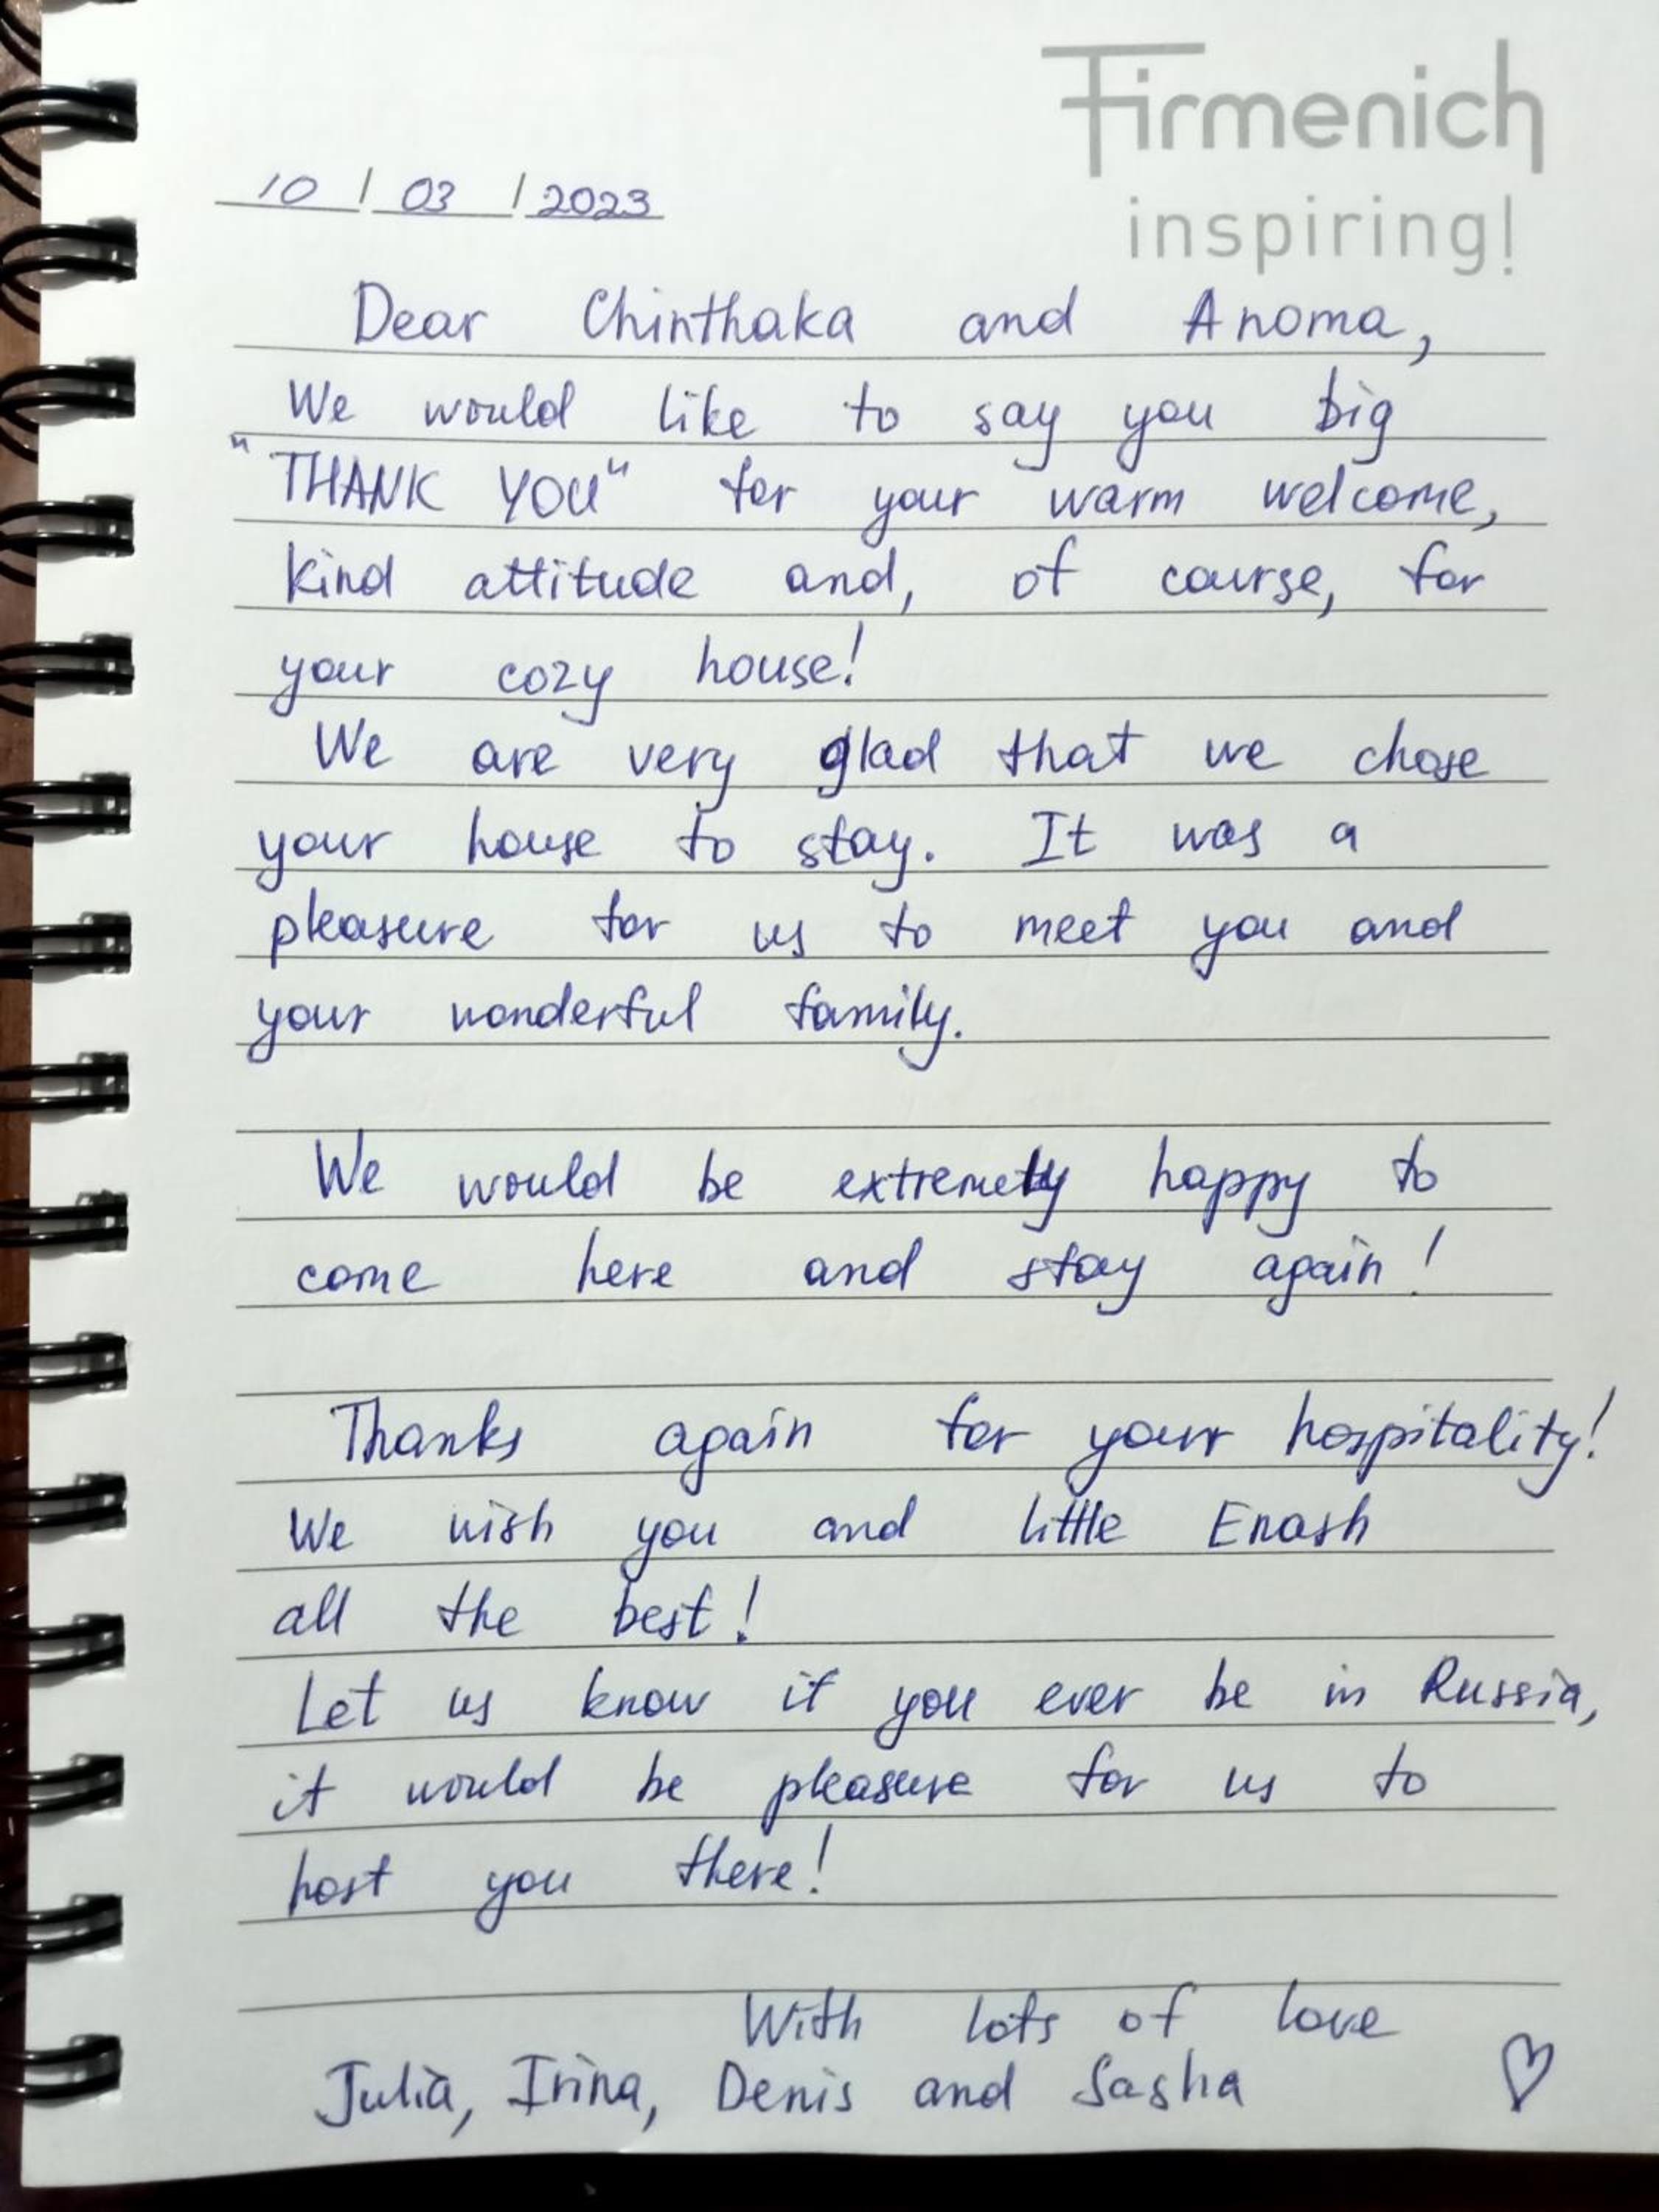 Firmenich
inspiring!
10 / 03 / 2023
Dear Chinthaka and Anoma,
We would like to say you big
"THANK YOU" for your warm welcome,
kind attitude and, of course, for
your cozy house!
We are very glad that we chose
your house to stay. It was a
pleasure for us to meet you and
your wonderful family.
We would be extremely happy to
come here and stay again!
Thanks again for your hospitality!
We wish you and little Enash
all the best!
Let us know if you ever be in Russia,
it would be pleasure for us to
host you there!
With lots of love
Julia, Irina, Denis and Sasha ♡